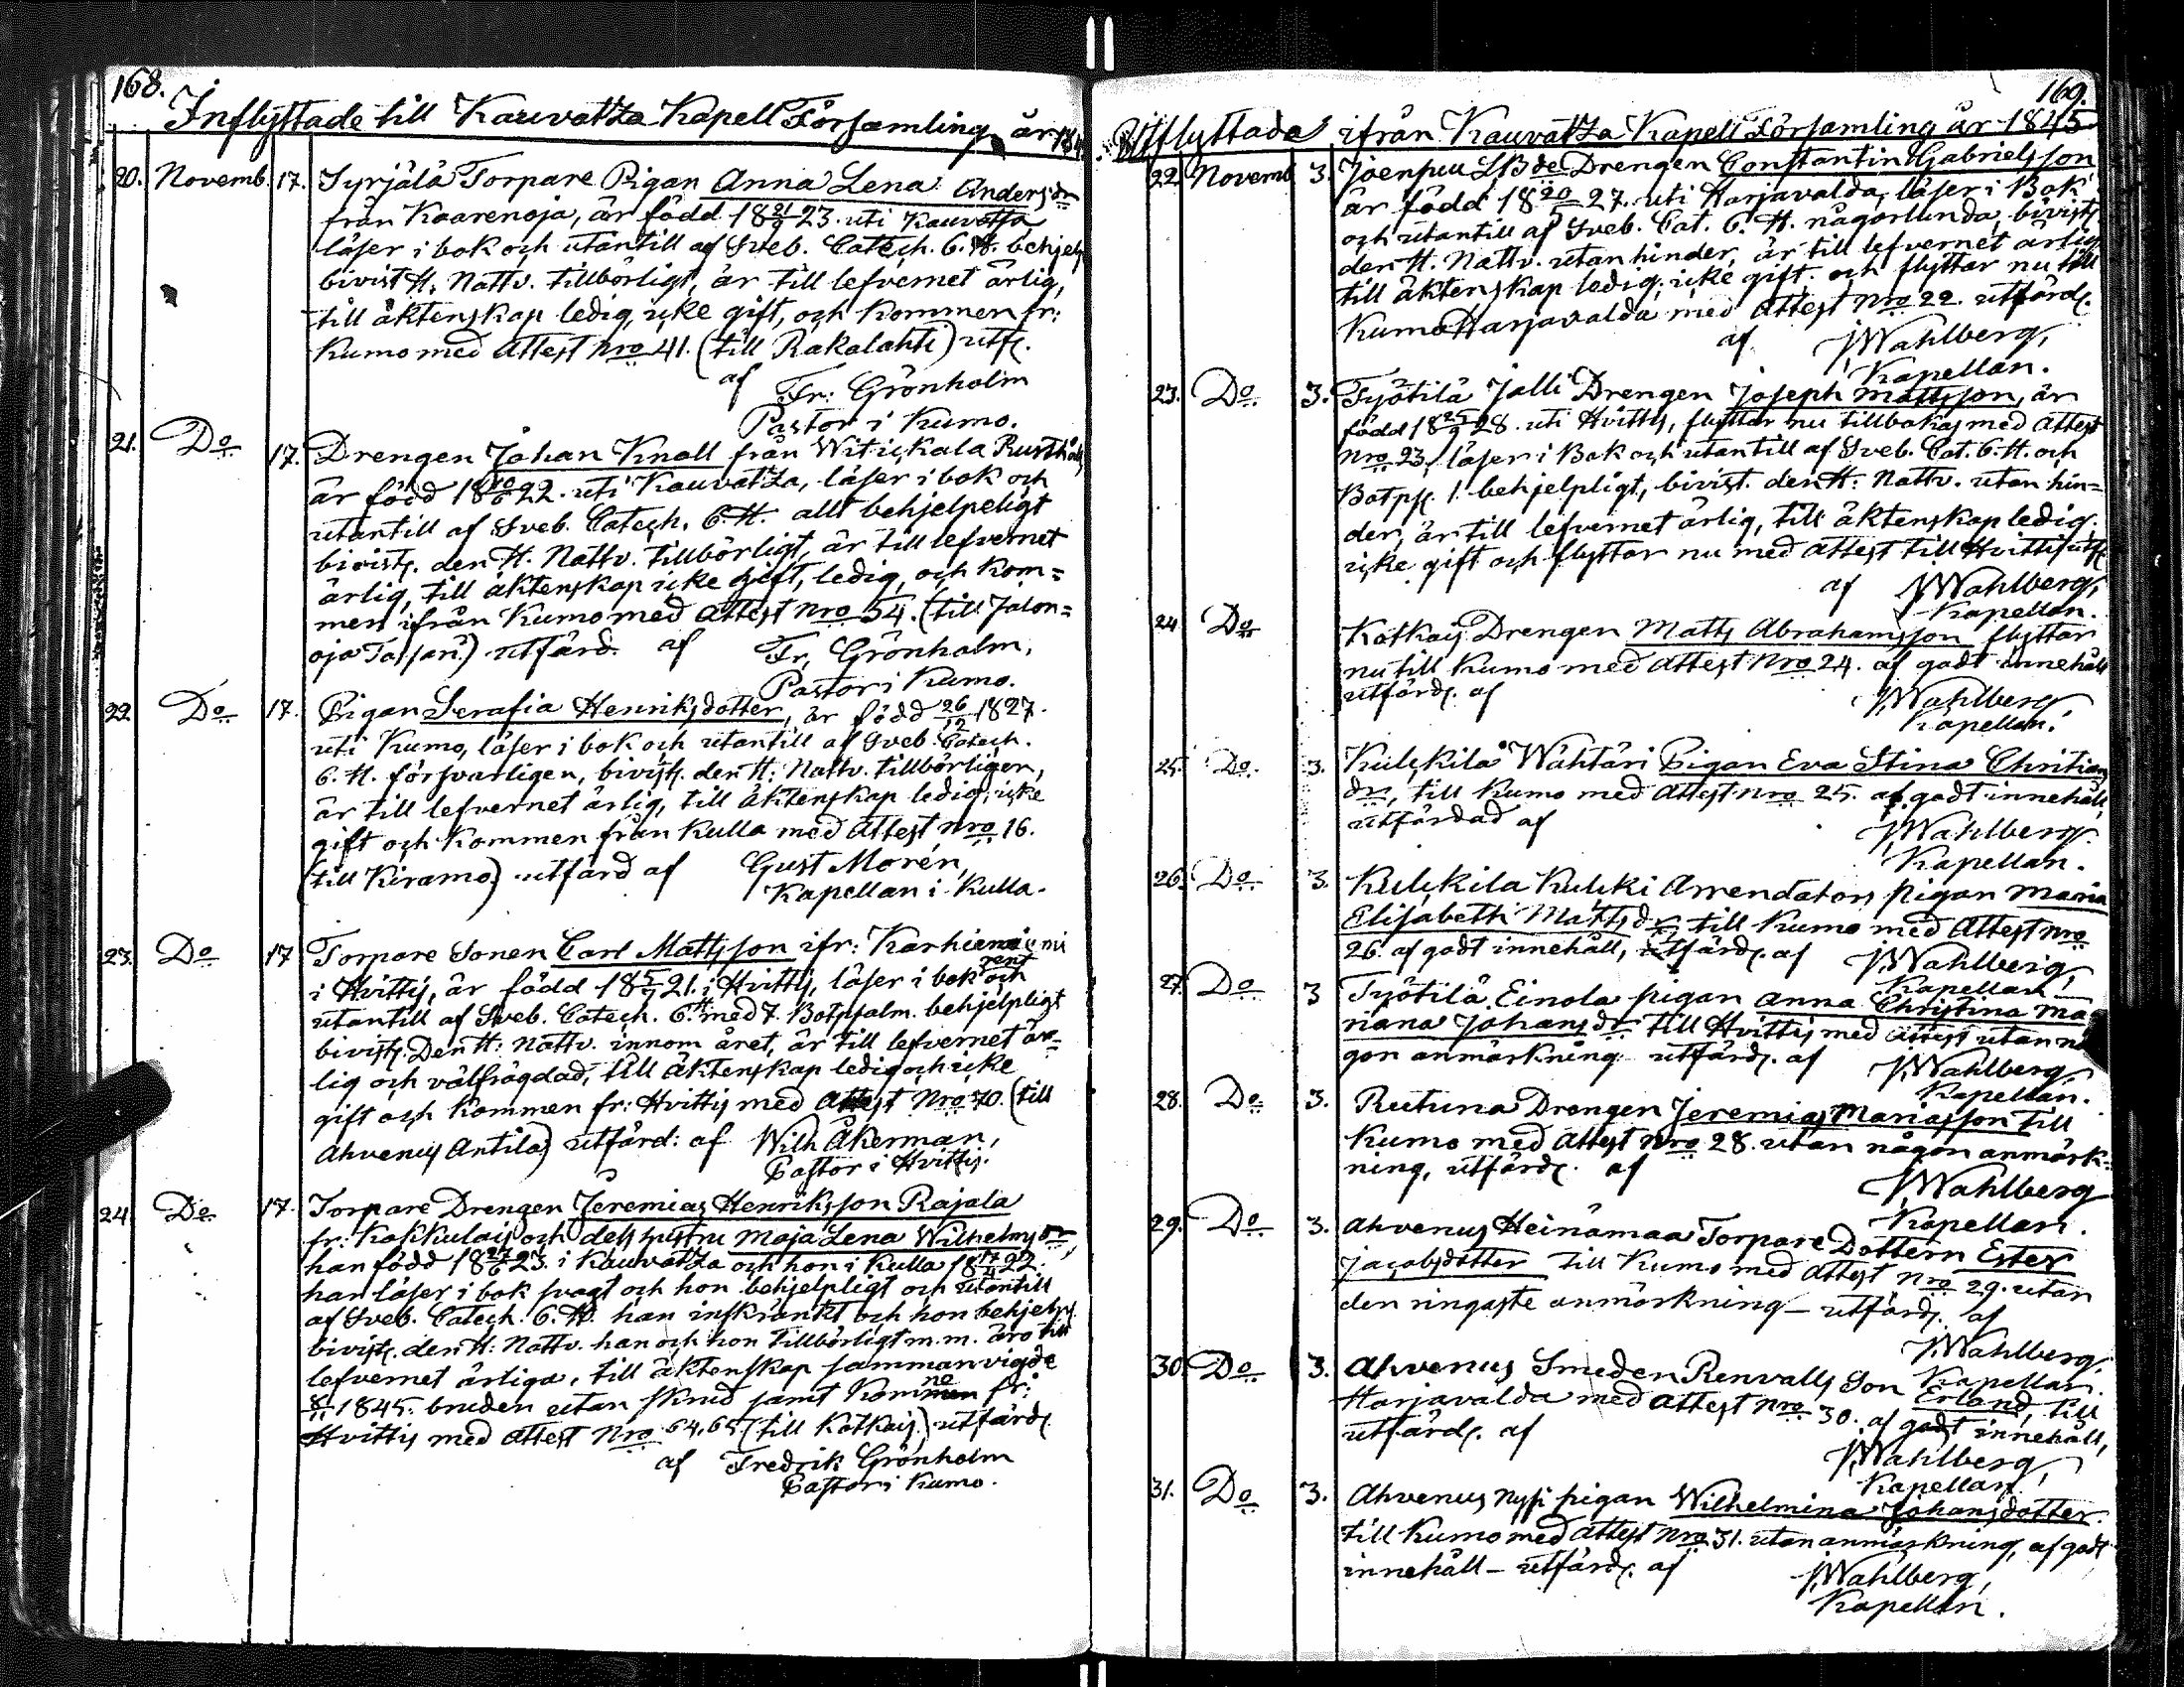 168.
Inflyttade till Kauvatza Kapell Församling år 184
20. Novemb. 17. Syrjälä Torpare Pigan Anna Lena Andersdr
från Kaarenoja, är född 18 21/9 23. uti Kauvatsa
läser i bok och utantill af Sveb. Catech. 6. H. behjelp
bivist H. Nattv. tillbörligt, är till lefvernet ärlig,
till äktenskap ledig, icke gift, och kommen fr:
Kumo med Attest Nro 41. (till Rakalahti) utf.
af Fr: Grönholm
Pastor i Kumo.
21. Do 17. Drengen Johan Knall från Witickala Rusthåls
är född 18 10/6 22. uti Kauvatza, läser i bok och
utantill af Sveb. Catech. 6. H. allt behjelpeligt
bivist. den H. Nattv. tillbörligt, är till lefvernet
ärlig, till äktenskap icke gift, ledig, och kom=
men ifrån Kumo med Attest Nro 54. (till Jalon=
oja Tassari) utfärd. af Fr. Grönholm,
Pastor i Kumo.
22 Do 17. Pigan Serafia Henriksdotter, är född 26/12 1827.
uti Kumo, läser i bok och utantill af Sveb. Catech.
6. H. försvarligen, bivist. den H. Nattv. tillbörligen,
är till lefvernet ärlig, till äktenskap ledig, icke
gift och kommen från Kulla med Attest Nro 16.
(till Kiramo) utfärd af Gust Morén,
Kapellan i Kulla.
23. Do 17 Torpare Sonen Carl Mattsson ifr:
i Hvittis, är född 18 5/7 21. i Hvittis, läser i bok rent och
utantill af Sveb. Catech. 6. H. med 7. Botpsalm. behjelpligt
bivist. Den H: Nattv. innom året, är till lefvernet är=
lig och välfrägdad, till äktenskap ledig och icke
gift och kommen fr: Hvittis med Attest Nro 70. (till
Ahvenus Antila) utfärd: af Wilh Åkerman,
Pastor i Hvittis.
24. Do 17. Torpare Drengen Jeremias Henriksson Rajala
fr: Kakkulais och dess hustru Maja Lena Wilhelmsdr,
han född 18 27/6 23. i Kauvatza och hon i Kulla 18 17/4 22.
han läser i bok svagt och hon behjelpligt och utantill
af Sveb. Catech. 6. H. han inskränkt och hon behjelp.
bivist. den H: Nattv. han och hon tillbörligt m.m. äro till
lefvernet ärliga, till äktenskap sammanvigde
8/11 1845. bruden utan skrud samt komne fr:
Hvittis med Attest Nro 64, 65 (till Kotkais.) utfärd.
af Fredrik Grönholm
Pastor i Kumo.
169.
Utflyttade ifrån Kauvatza Kapell Församling år 1845
22. Novemb 3. Joenpuu Drengen Constantin Gabrielsson
är född 18 20/5 27. uti Harjavalda, läser i Bok
och utantill af Sveb. Cat. 6. H. någorlunda, bivist.
den H. Nattv. utan hinder, är till lefvernet ärlig
till äktenskap ledig, icke gift. och flyttar nu till
Kumo Harjavalda med Attest Nro 22. utfärd.
af J. Wahlberg,
Kapellan.
23. Do 3. Työtilä Jalli Drengen Joseph Mattsson, är
född 18 25/9 28. uti Hvittis, flyttar nu tillbakas med Attest
Nro 23, läser i Bok och utantill af Sveb. Cat. 6. H. och
Botps. 1. behjelpligt, bivist. den H: Nattv. utan hin=
der, är till lefvernet ärlig, till äktenskap ledig.
icke gift och flyttar nu med attest till Hvittis utf.
af J. Wahlberg,
Kapellan.
24 Do Kotkais Drengen Matts Abrahamsson flyttar
nu till Kumo med Attest Nro 24. af godt innehåll
utfärd. af J. Wahlberg
Kapellan.
25. Do 3. Kulckila Wähtäri Pigan Eva Stina Christians
dr, till Kumo med Attest Nro 25. af godt innehåll,
utfärdad af J. Wahlberg.
Kapellan.
26. Do 3. Kulckila Kulcki Arrendators pigan Maria
Elisabeth Mattsdr till Kumo med Attest Nro
26. af godt innehåll, utfärd. af J. Wahlberg,
Kapellan
27. Do 3 Työtilä Einola pigan Anna Christina Ma
riana Johansdr. till Hvittis med attest utan nå
gon anmärkning utfärd. af J. Wahlberg,
Kapellan.
28. Do 3. Ruutuna Drengen Jeremias Mariasson till
Kumo med Attest Nro 28. utan någon anmärk=
ning, utfärd. af
J. Wahlberg
Kapellan.
29. Do 3. Ahvenus Heinämaa Torpare Dottern Ester
Jacobsdotter till Kumo med Attest Nro 29. utan
den ringaste anmärkning – utfärd. af
J. Wahlberg,
Kapellan.
30. Do 3. Ahvenus Smeden Renvalls Son Erland, till
Harjavalda med Attest Nro 30. af godt innehåll,
utfärd. af J. Wahlberg,
Kapellan.
31. Do 3. Ahvenus Nysi pigan Wilhelmina Johansdotter
till Kumo med Attest Nro 31. utan anmärkning, af godt
innehåll – utfärd. af J. Wahlberg,
Kapellan.